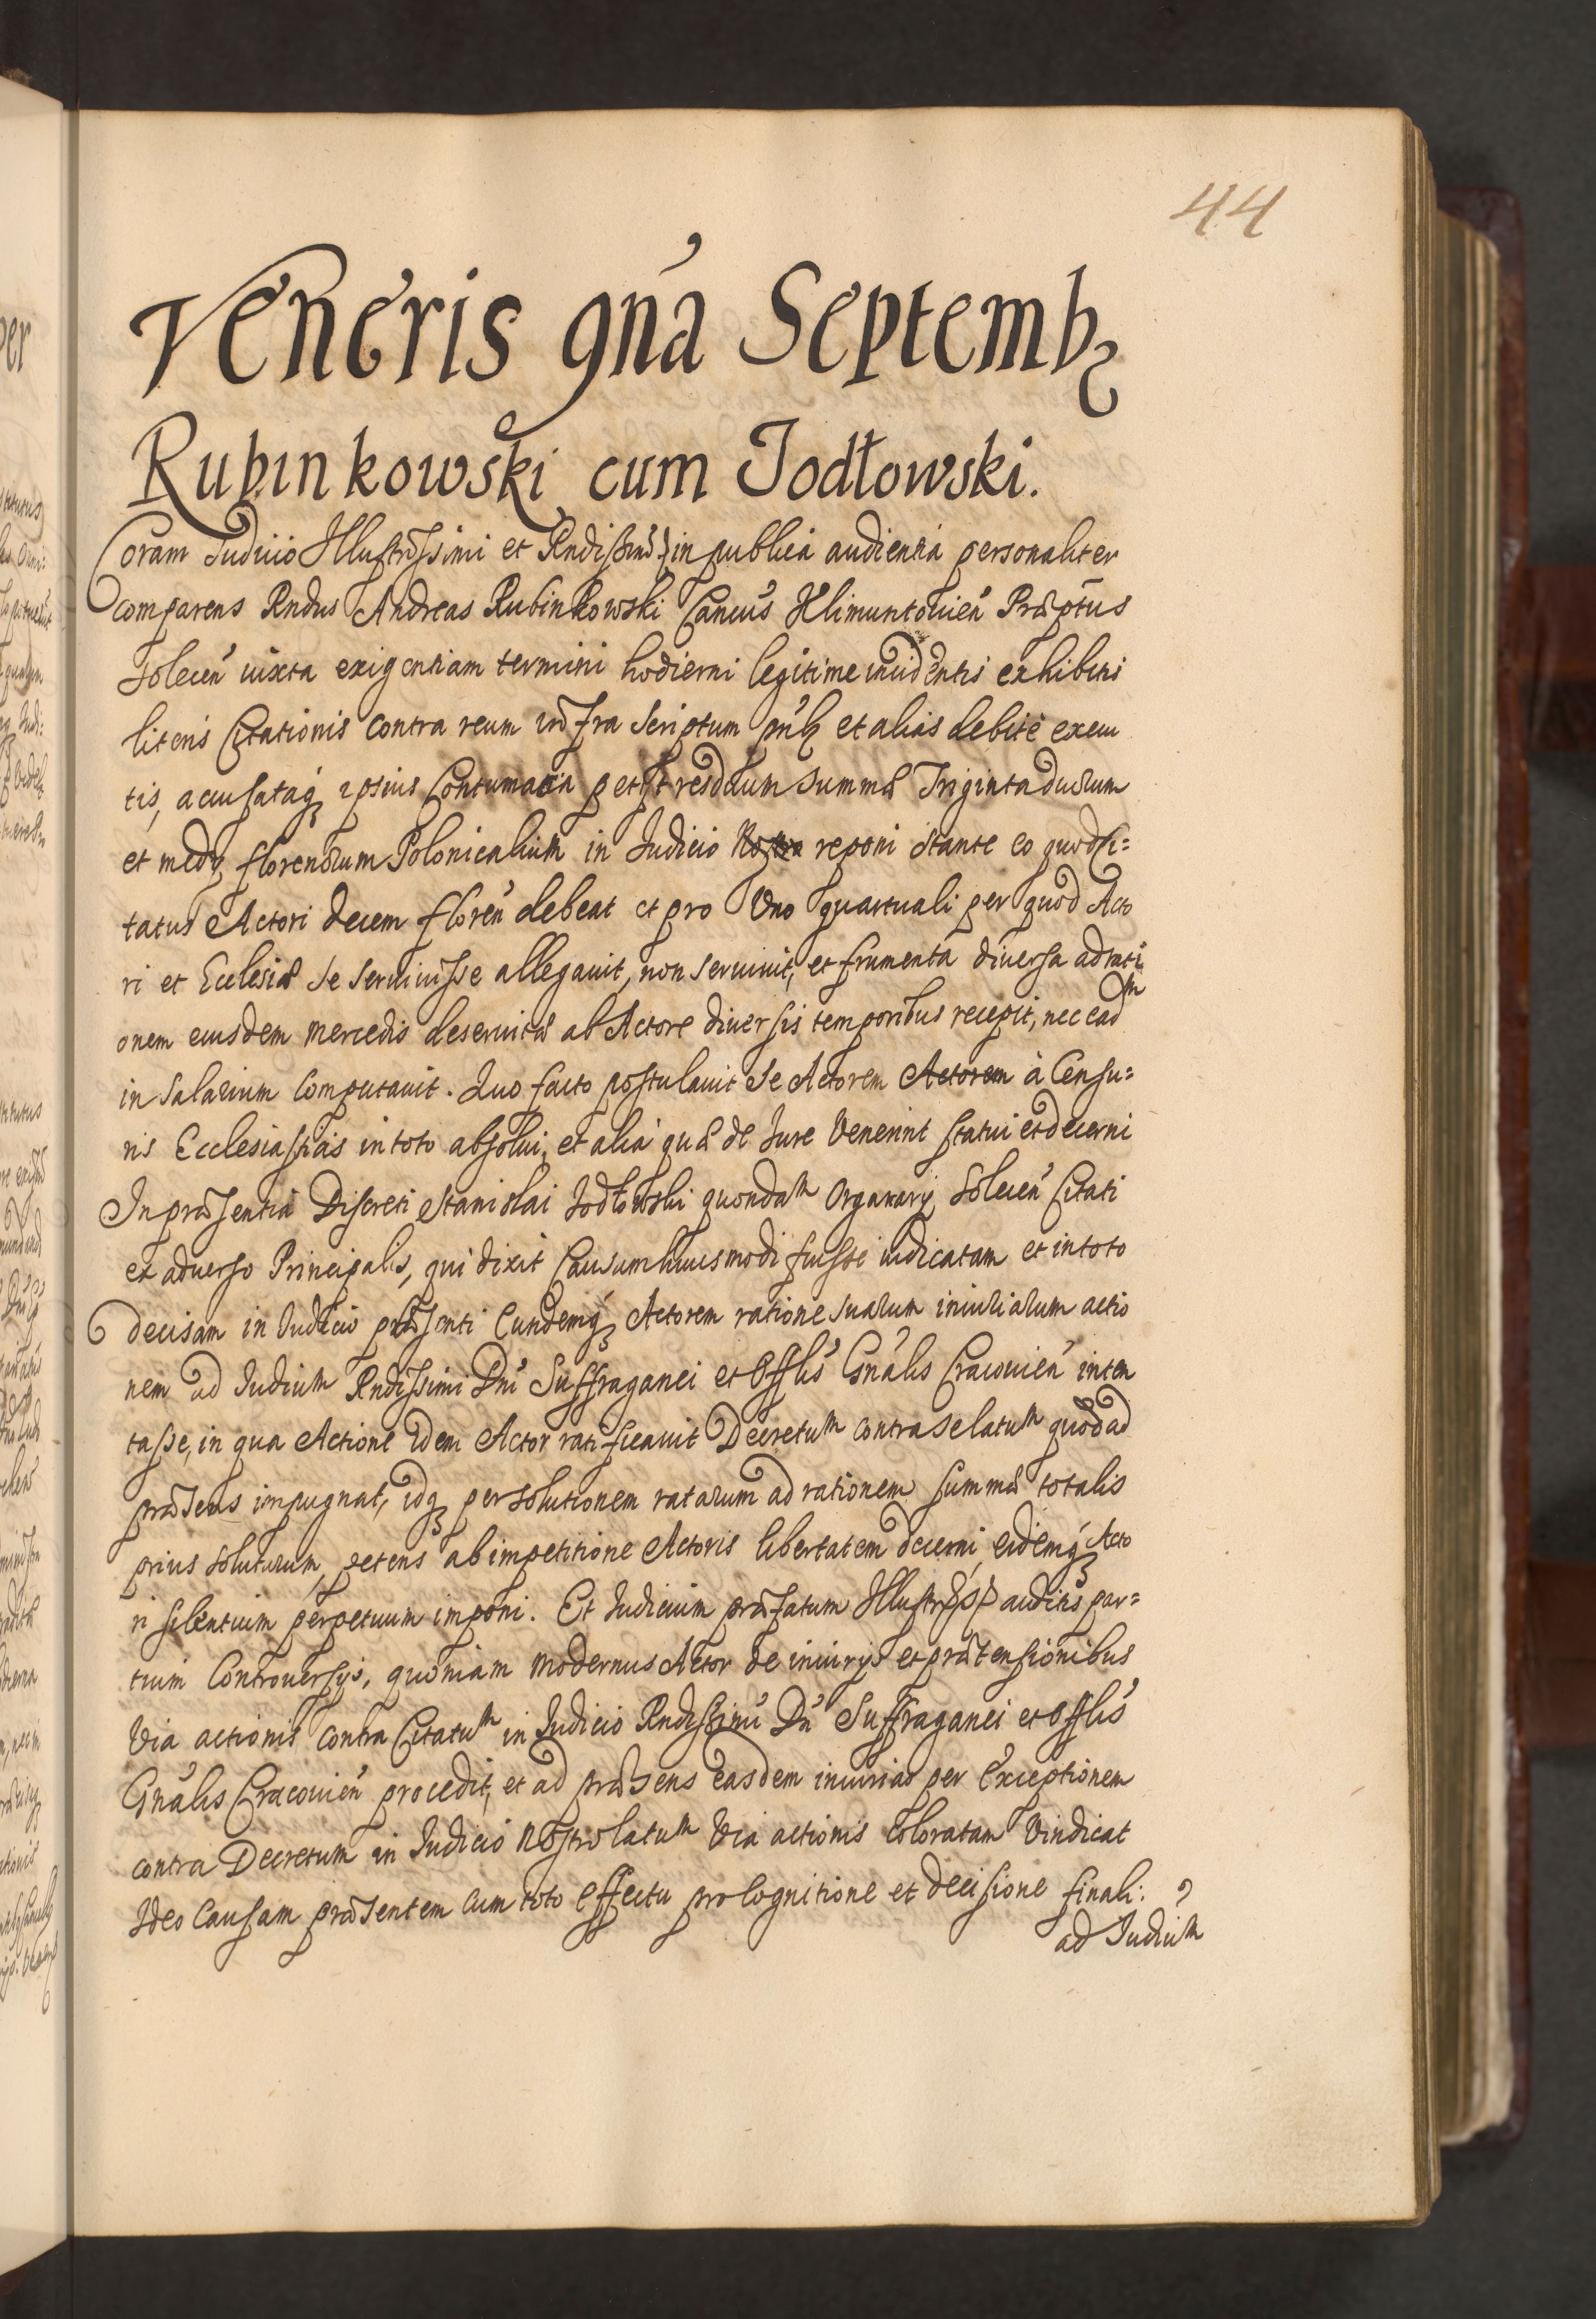 44
Veneris 9ná Septembꝫ
Rubinkowski cum Jodłowski.
Coram Judicio Illustrissimi et Rndissimi in publica audientia personaliter
comparens Rndus Andreas Rubinkowski Cancus Klimuntouien Præptus
Solecen iuxta exigentiam termini hodierni legitime incidentis exhibitis
literis Citationis contra reum infra scriptum et alias debite execu
tis, accusataqꝫ ipsius Contumacia petijt residuum summæ Triginta duarum
et medÿ florenorum Polonicalium in Judicio reponi stante eo quod Ci=
tatus Actori decem floren debeat et pro Uno quartuali per quod Acto
ri et Ecclesiæ se seruiuisse allegauit, non seruiuit, et frumenta diuersa ad rati
onem eiusdem mercedis deseruitæ ab Actore diuersis temporibus recepit, nec eadm
in salarium computauit. Quo facto postulauit se Actorem Actorem à Censu=
ris Ecclesiasticis in toto absolui, et alia quæ de Jure Venerint statui et decerni
In præsentia Discreti Stanislai Jodłowski quondam Organarÿ Solecen Citati
ex aduerso Principalis, qui dixit Causam huiusmodi fuisse iudicatam et in toto
decisam in Judicio præsenti Eundemqꝫ Actorem ratione suarum iniuriarum actio
nem ad Judicium Rndissimi Dni Suffraganei et Offlis Gnalis Cracouien inten
tasse, in qua Actione idem Actor ratificauit Decretum contra se latum quod ad
præsens impugnat, idqꝫ per solutionem ratarum ad rationem summæ totalis
prius solutarum, petens ab impetitione Actoris libertatem decerni, eidemqꝫ Acto
ri silentium perpetuum imponi. Et Judicium præfatum Illustriss auditis par=
tium Controuersÿs, quoniam modernus Actor de iniurÿs et prætensionibus
via actionis contra Citatum in Judicio Rndissimi Dni Suffraganei et Offlis
Gnalis Cracouien procedit, et ad præsens easdem iniurias per Exceptionem
contra Decretum in Judicio Nostro latum Via actionis coloratam Vindicat
Ideo Causam præsentem cum toto effectu pro Cognitione et decisione finali:
ad Judicium